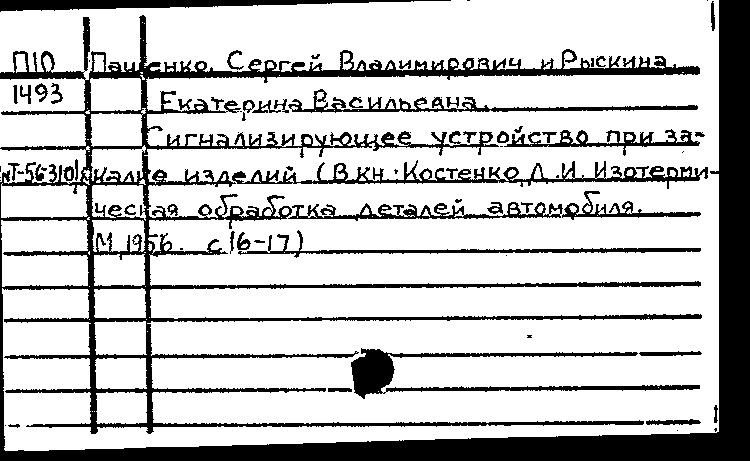 П10 Пащенко, Сергей Владимирович и Рыскина,
1493 Екатерина Васильевна.
Сигнализирующее устройство при за-
калке изделий (В кн.: Костенко Л.И. Изотерми-
ческая обработка деталей автомобиля.
М, 1956. с 16-17)